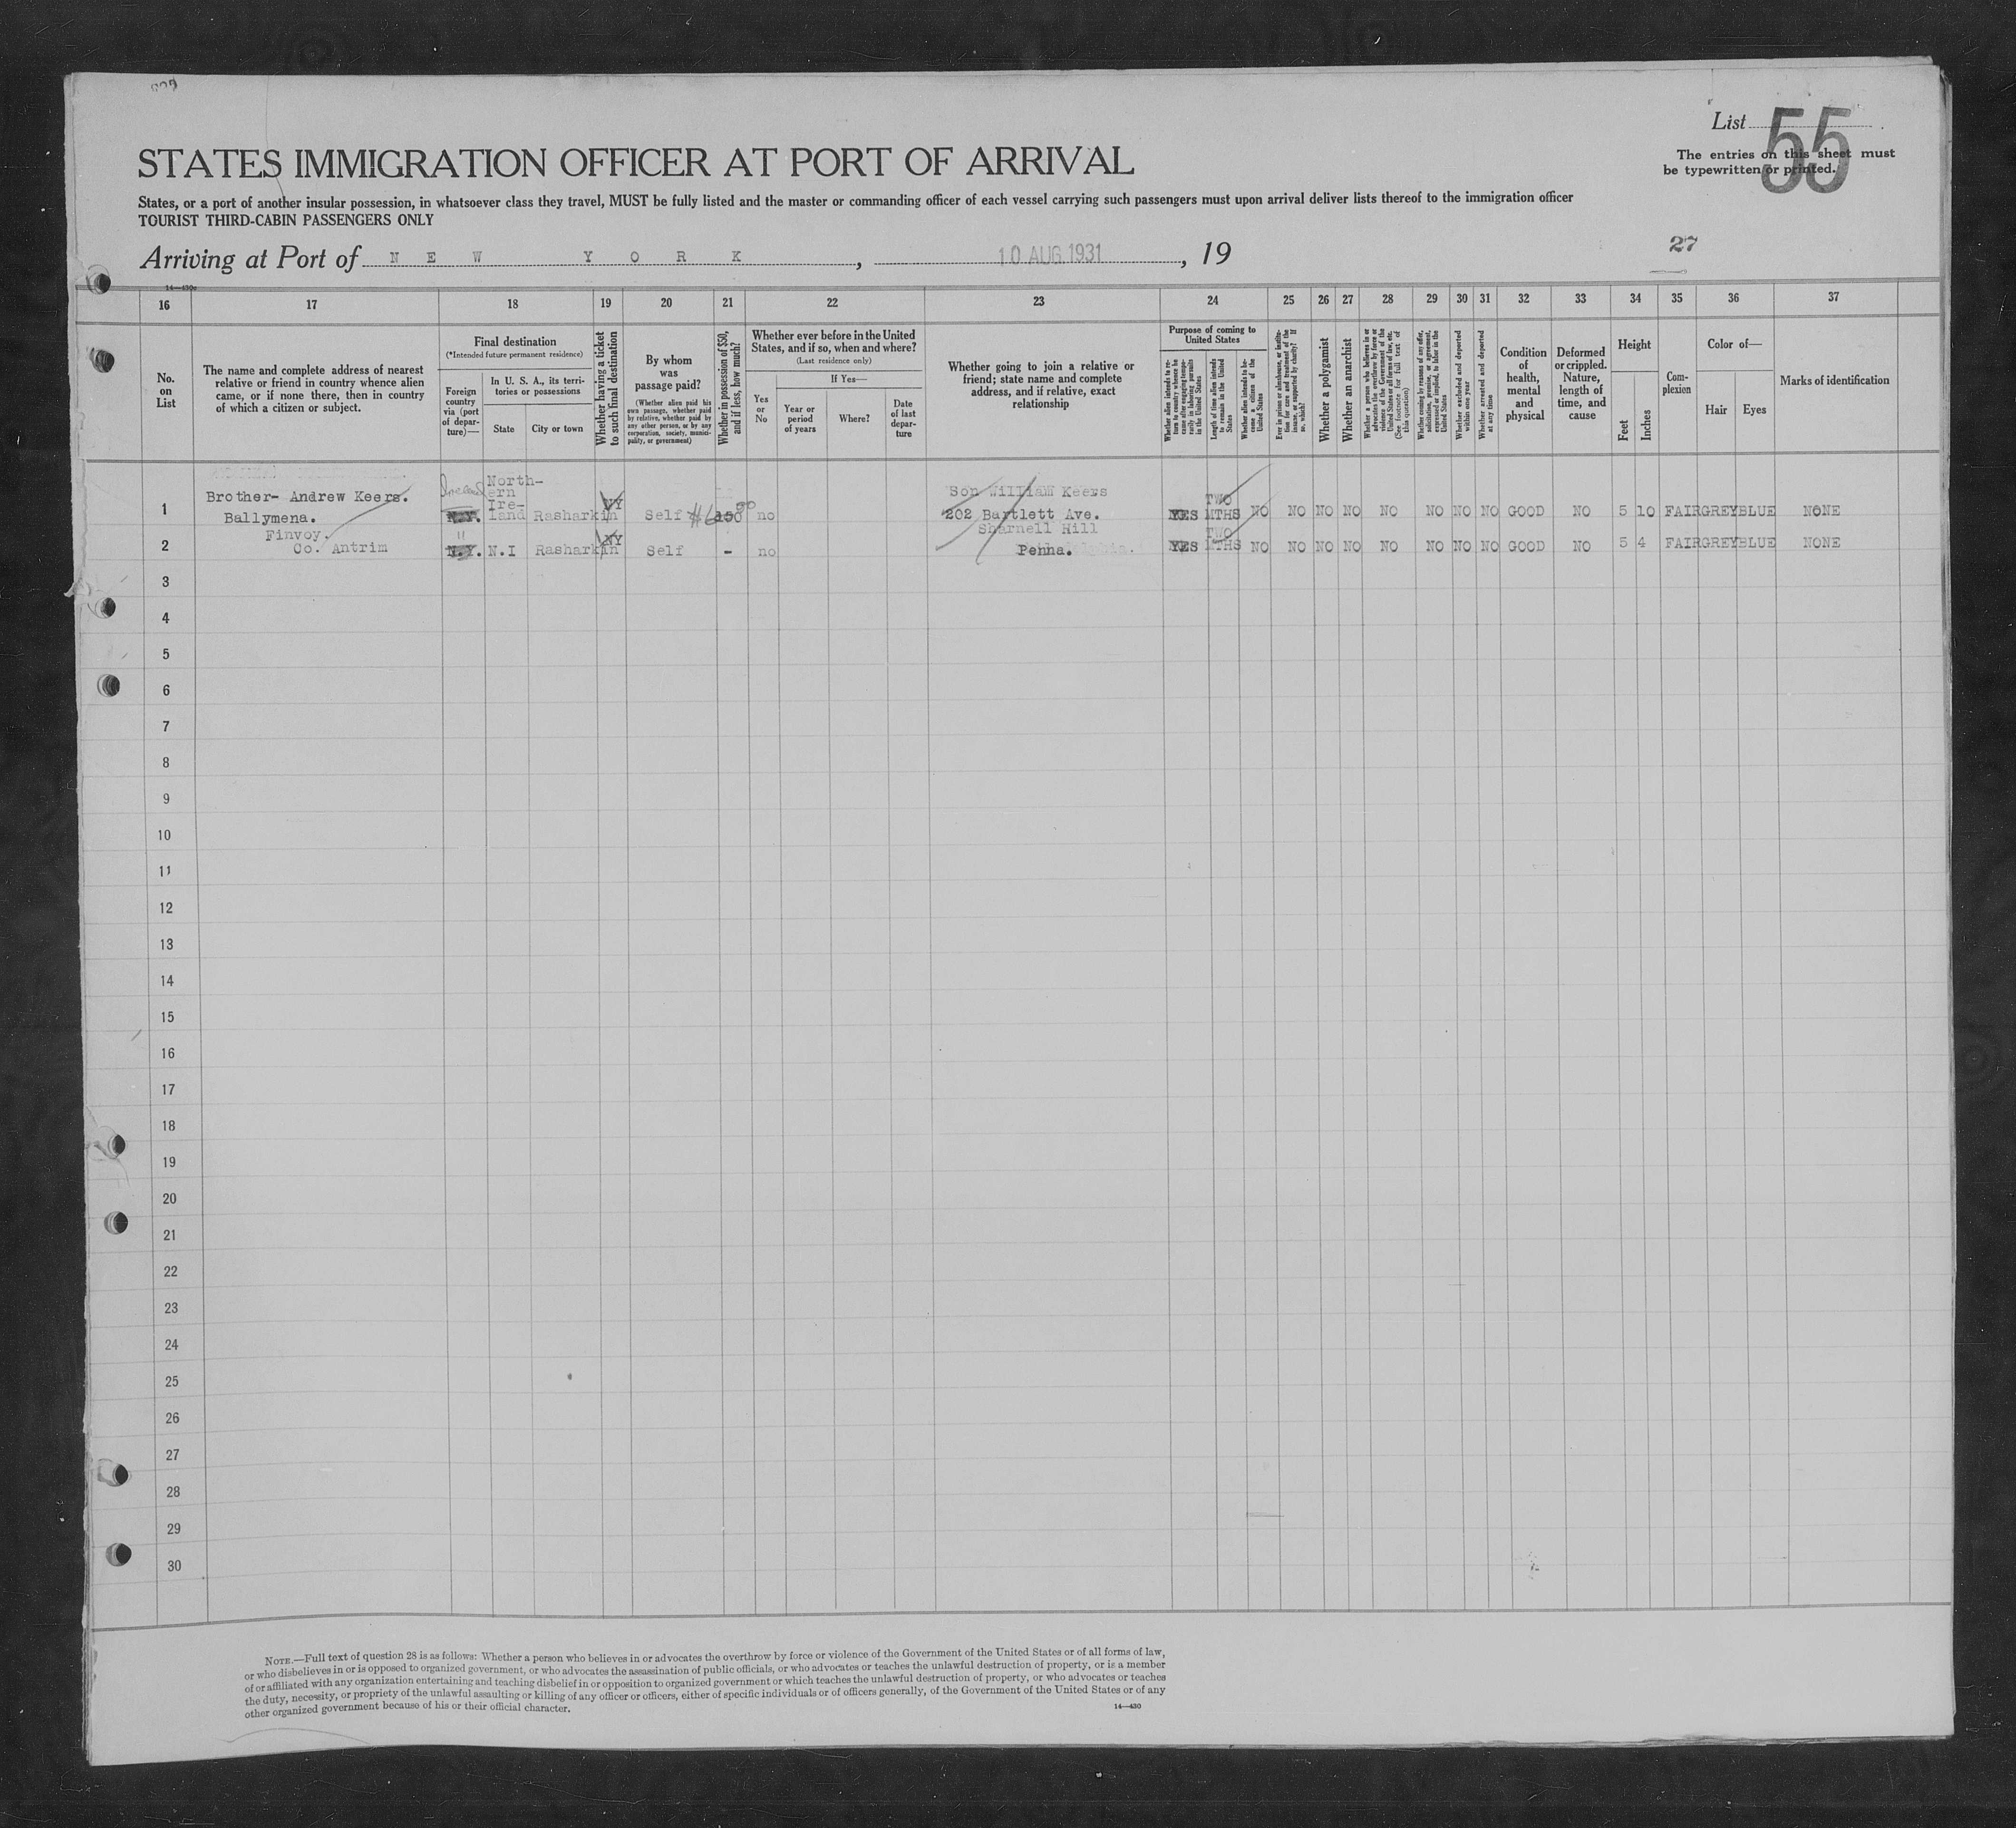 List 55
STATES IMMIGRATION OFFICER AT PORT OF ARRIVAL
The entries on this sheet must
be typewritten or printed.
States, or a port of another insular possession, in whatsoever class they travel, MUST be fully listed and the master or commanding officer of each vessel carrying such passengers must upon arrival deliver lists thereof to the immigration officer
TOURIST THIRD-CABIN PASSENGERS ONLY
Arriving at Port of NEW YORK, 10 AUG 1931, 19
27
14—430c
16 17 18 19 20 21 22 23 24 25 26 27 28 29 30 31 32 33 34 35 36 37
No. on List
The name and complete address of nearest
relative or friend in country whence alien
came, or if none there, then in country
of which a citizen or subject.
Final destination
(*Intended future permanent residence)
Foreign country via (port of departure)—
In U. S. A., its territories or possessions
State
City or town
Whether having a ticket to such final destination
By whom was passage paid?
(Whether alien paid his own passage, whether paid by relative, whether paid by any other person, or by any corporation, society, municipality, or government)
Whether in possession of $50, and if less, how much?
Whether ever before in the United
States, and if so, when and where?
(Last residence only)
Yes or No
If Yes—
Year or period of years
Where?
Date of last departure
Whether going to join a relative or
friend; state name and complete
address, and if relative, exact
relationship
Purpose of coming to United States
Whether alien intends to return to country whence he came after engaging temporarily in laboring pursuits in the United States
Length of time alien intends to remain in the United States
Whether alien intends to become a citizen of the United States
Ever in prison or almshouse, or institution for care and treatment of the insane, or supported by charity? If so, which?
Whether a polygamist
Whether an anarchist
Whether a person who believes in or advocates the overthrow by force or violence of the Government of the United States or all forms of law, etc. (See footnote for full text of this question)
Whether coming by reasons of any offer, solicitation, promise, or agreement, expressed or implied, to labor in the United States
Whether excluded and deported within one year
Whether arrested and deported at any time
Condition of health, mental and physical
Deformed or crippled. Nature, length of time, and cause
Height
Feet
Inches
Complexion
Color of—
Hair
Eyes
Marks of identification
1 Brother- Andrew Keers. Ireland Northern Ireland Rasharkin NY Self no Son William Keers
Ballymena. N.Y. 202 Bartlett Ave. YES TWO MTHS NO NO NO NO NO NO NO NO GOOD NO 5 10 FAIR GREY BLUE NONE
Finvoy. Sharnell Hill
2 Co. Antrim " N.Y. N.I Rasharkin NY Self - no Penna. YES TWO MTHS NO NO NO NO NO NO NO NO GOOD NO 5 4 FAIR GREY BLUE NONE
3
4
5
6
7
8
9
10
11
12
13
14
15
16
17
18
19
20
21
22
23
24
25
26
27
28
29
30
NOTE.—Full text of question 28 is as follows: Whether a person who believes in or advocates the overthrow by force or violence of the Government of the United States or of all forms of law,
or who disbelieves in or is opposed to organized government, or who advocates the assassination of public officials, or who advocates or teaches the unlawful destruction of property, or is a member
of or affiliated with any organization entertaining and teaching disbelief in or opposition to organized government or which teaches the unlawful destruction of property, or who advocates or teaches
the duty, necessity, or propriety of the unlawful assaulting or killing of any officer or officers, either of specific individuals or of officers generally, of the Government of the United States or of any
other organized government because of his or their official character.
14—430